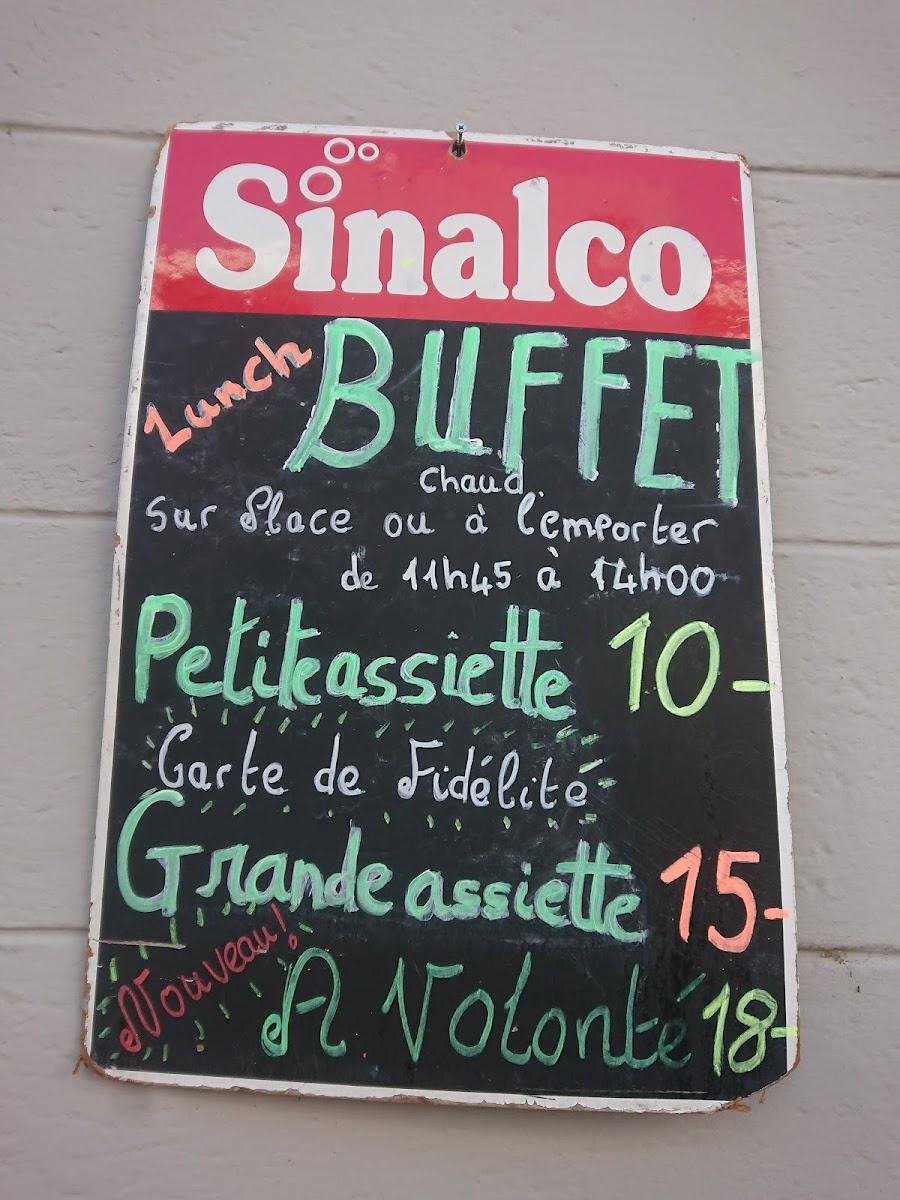 Sinalco
Lunch BUFFET
chaud
sur Place ou à l'emporter
de 11h45 à 14h00
Petite assiette 10-
Carte de Fidélité
Grande assiette 15-
Nouveau! A Volonté 18-